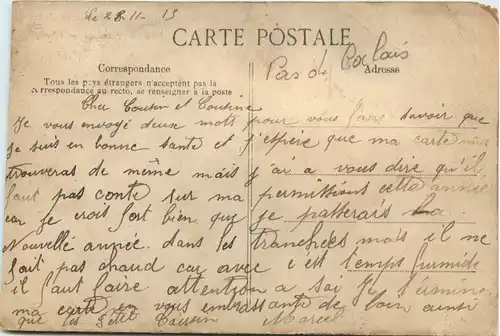 Le 28-11-15
CARTE POSTALE
Pas de Calais
Correspondance
Adresse
Tous les pays étrangers n'acceptent pas la
correspondance au recto, se renseigner à la poste
Cher Cousin et Cousine
Je vous envoyé deux mots pour vous faire savoir que
je suis en bonne sante et j'espère que ma carte vous
trouveras de même mais j'ai a vous dire qu'il
faut pas conté sur ma permittions cette année
car je crois fort bien que je passerais la
Nouvelle année dans les tranchées mais il ne
fait pas chaud car avec c'est temps humide
il faut faire attention a soi Je termine
ma carte en vous embrassante de loin ainsi
que les petit Cousin Marcel